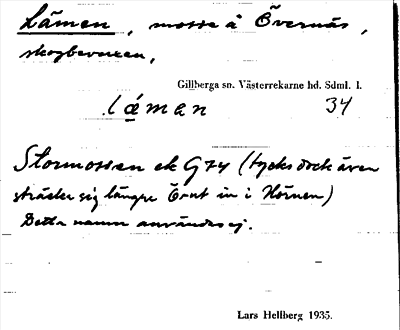 Lämen, mosse å Övernäs,
skogbevuxen,
Gillberga sn. Västerrekarne hd. Sdml. l.
lä̀man 34
Stormossen ek G74 (tycks dock även
sträcka sig längre Österut in i Hörnen)
Detta namn användes ej.
Lars Hellberg 1935.